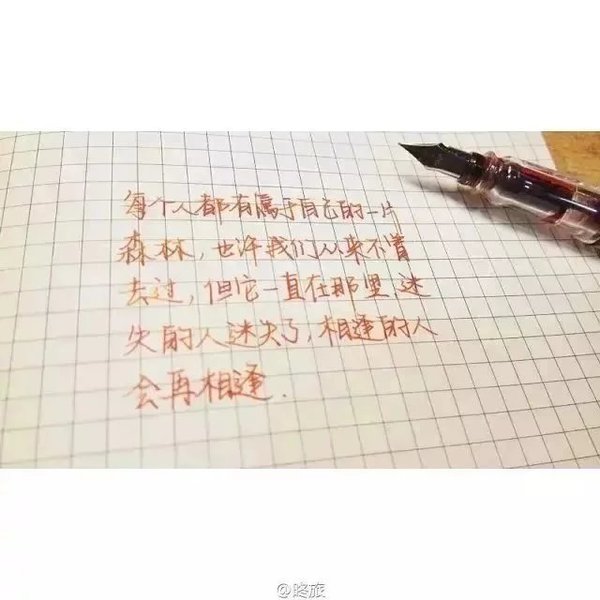 每个人都有属于自己的一片
森林，也许我们从来不曾
去过，但它一直在那里，迷
失的人迷失了，相逢的人
会再相逢．
@咚旅